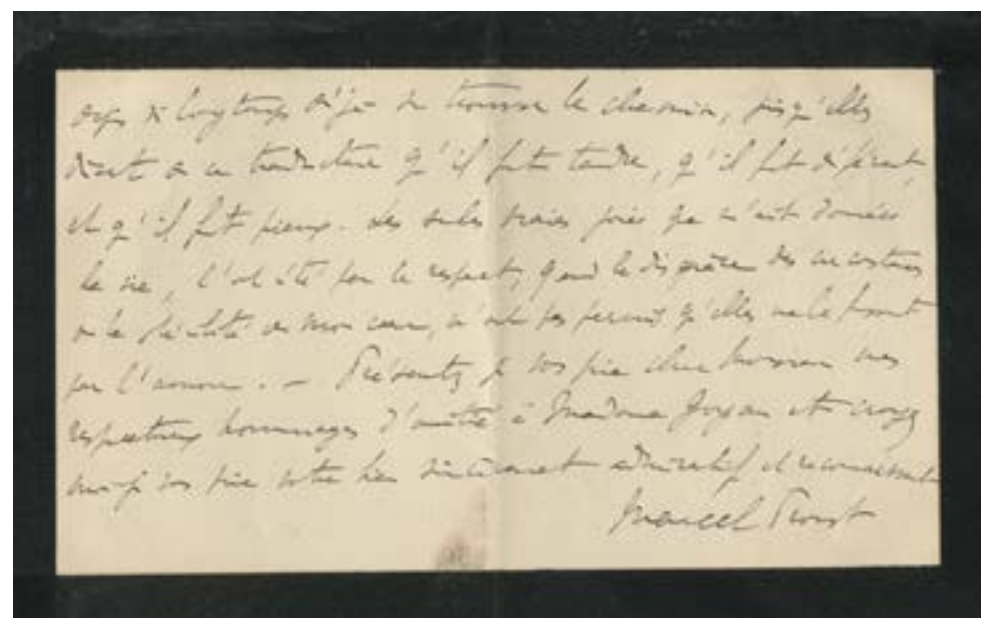 longtemps déjà trouver le chemin, puisqu'elles
de ce traducteur qu'il fut tendre, qu'il fut déférent,
et qu'il fut pieux. Les seules vraies joies que m'ait données
la vie, l'ont été par le respect, quand la disgrâce des circonstances
ou la de mon cœur, n'ont pas permis qu'elles me le fussent
par l'amour. — Présentez je vous prie cher Monsieur mes
respectueux hommages d'amitié à Madame et croyez
moi je vous prie votre bien sincèrement admiratif et reconnaissant
Marcel Proust